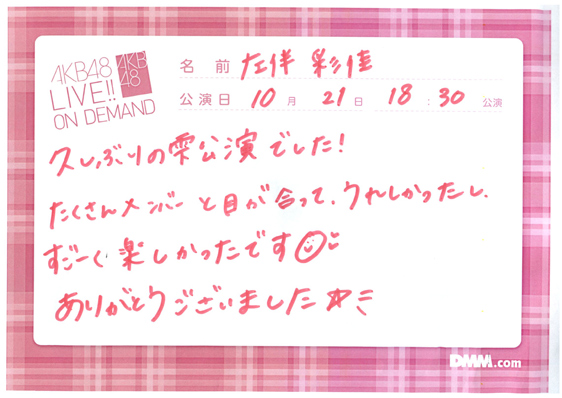 AKB48
LIVE!!
ON DEMAND
AKB
48
名前 左伴 彩佳
公演日 10月 21日 18:30 公演
久しぶりの雫公演でした!
たくさんメンバーと目が合って、うれしかったし、
すごーく楽しかったです
ありがとうございました
DMM.com